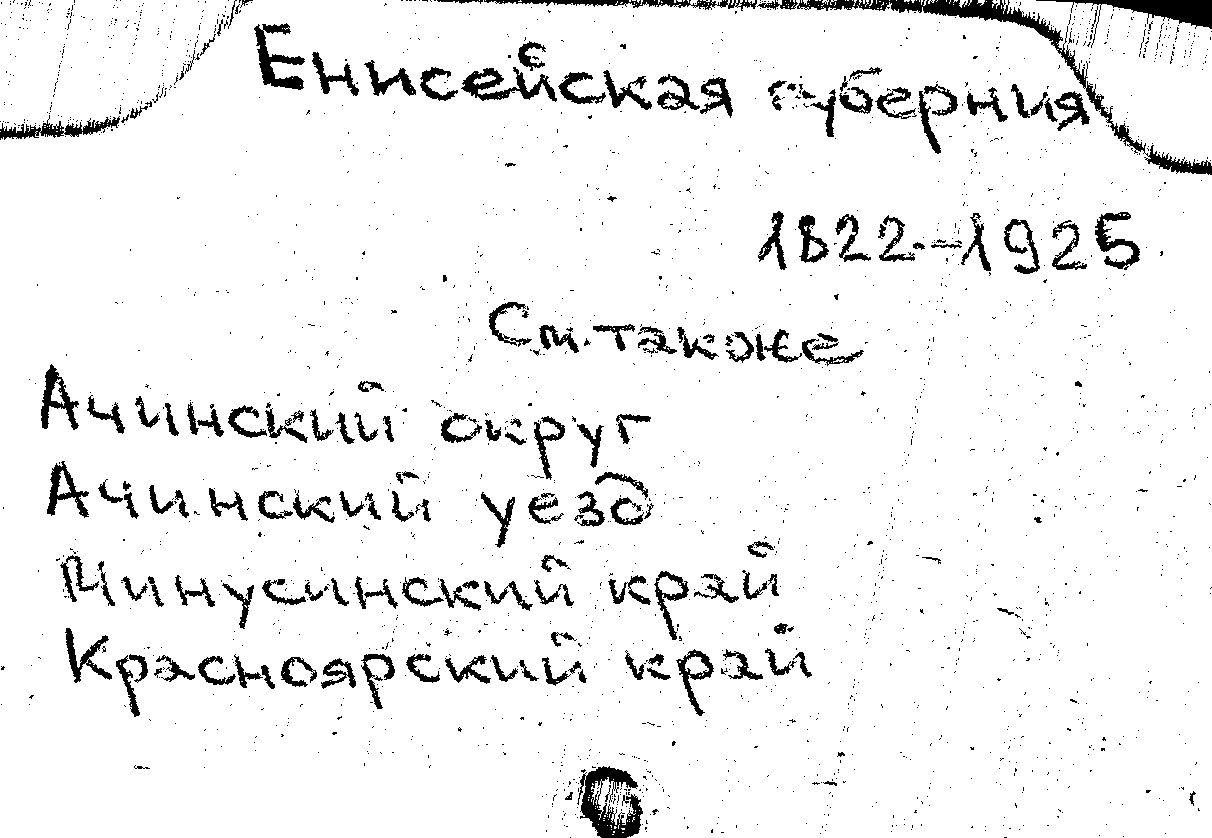 Енисейская губерния
1822-1925
См. также
Ачинский округ
Ачинский уезд
Минусинский край
Красноярский край